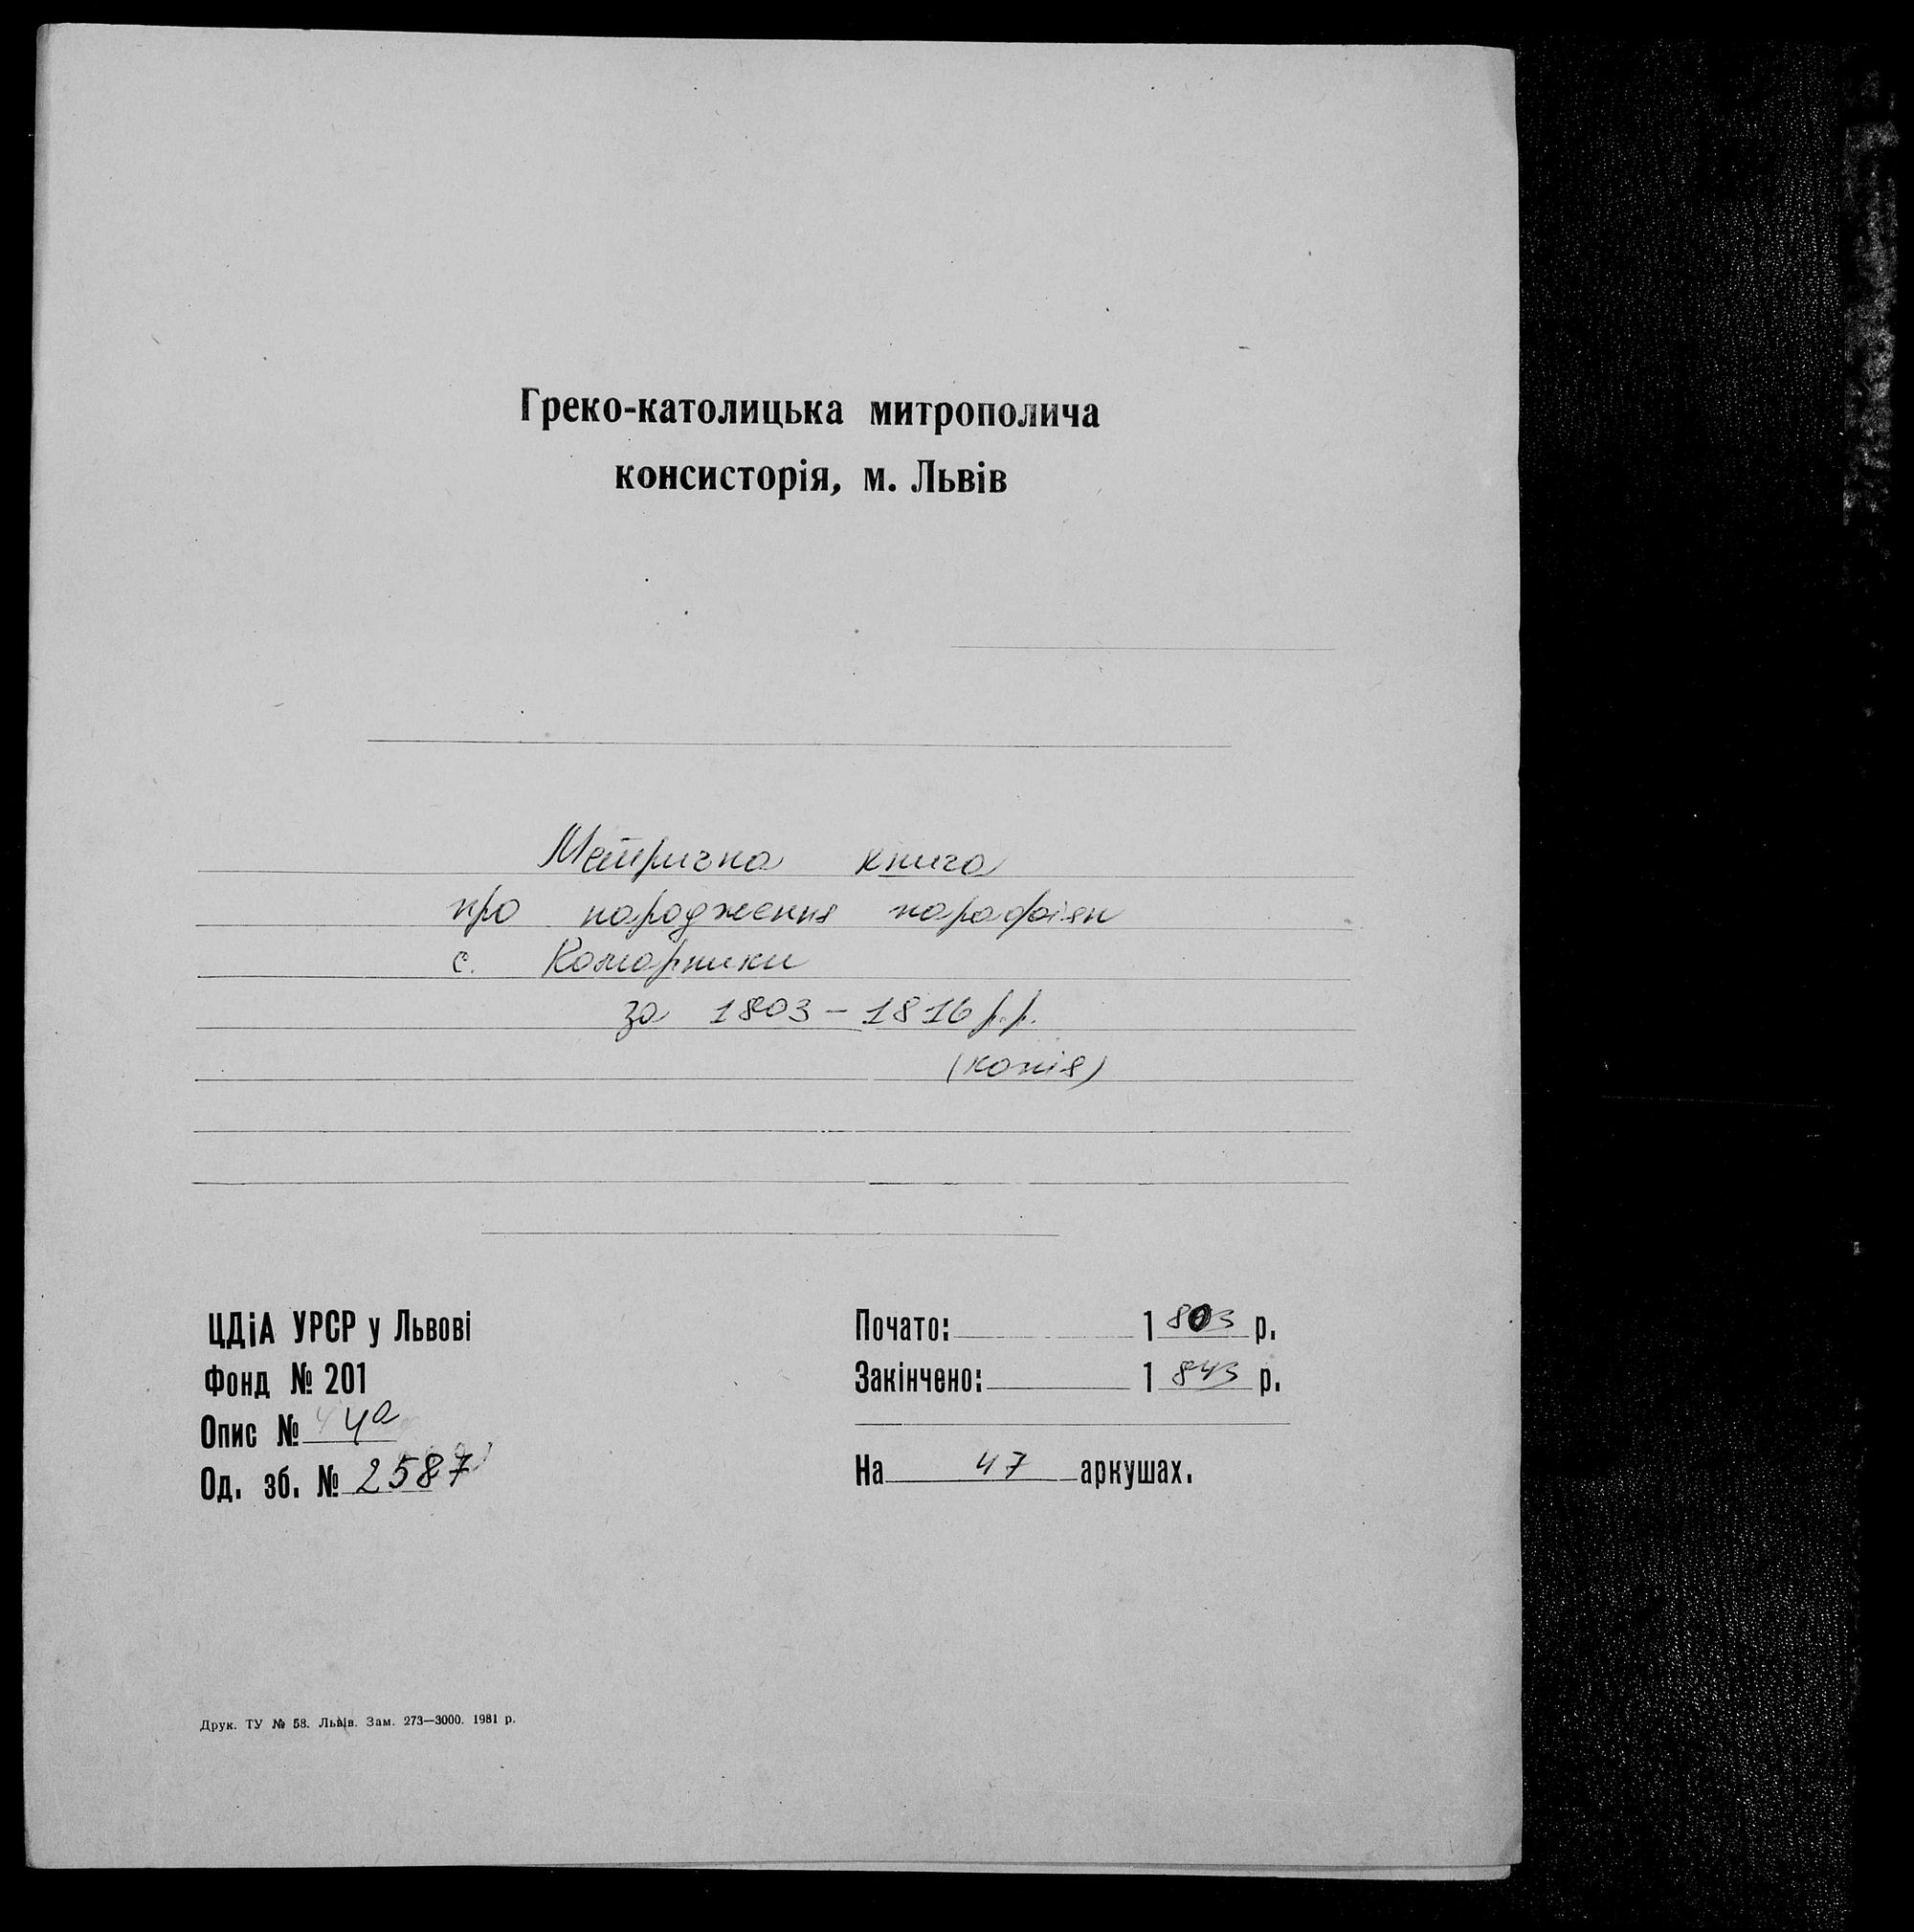 Греко-католицька митрополича
консисторія, м. Львів
Метрична книга
про народження парафіян
с. Комарники
за 1803 – 1816 р.р.
(копія)
ЦДІА УРСР у Львові
Фонд № 201
Опис № 4а
Од. зб. № 2587
Почато: 1803 р.
Закінчено: 1843 р.
На 47 аркушах.
Друк. ТУ № 58. Львів. Зам. 273—3000. 1981 р.